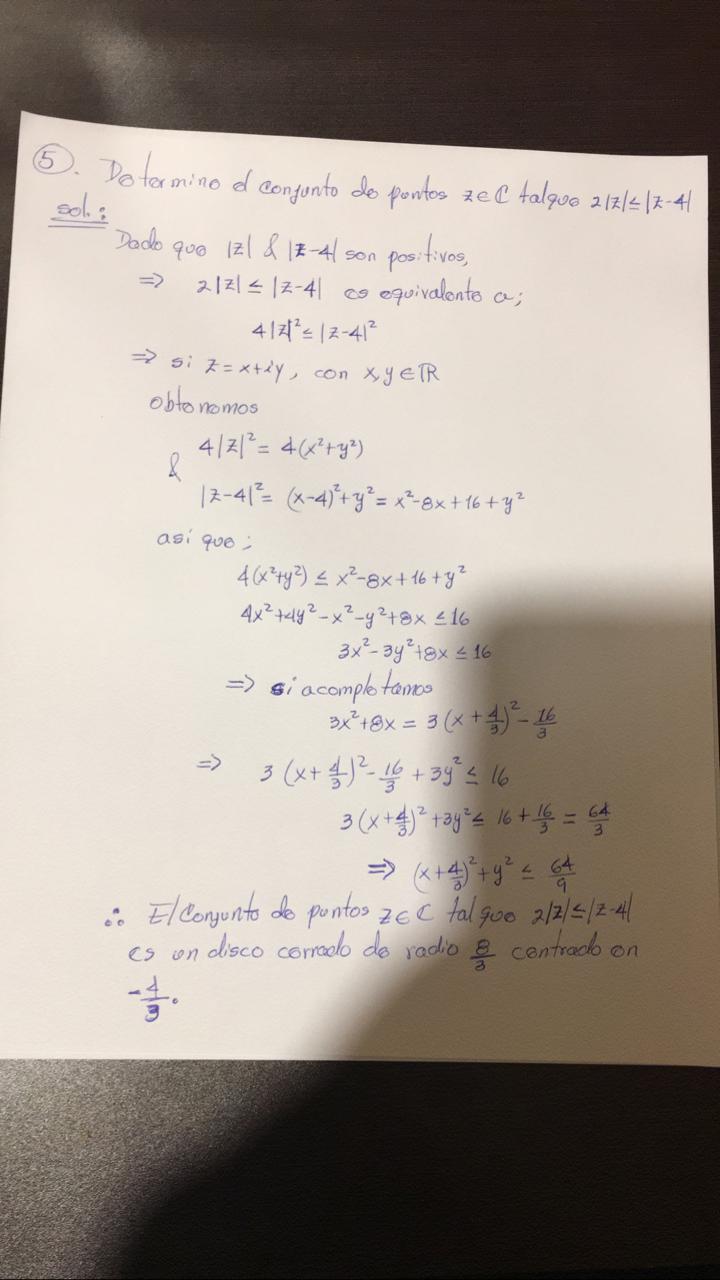 5. Determine el conjunto de puntos z∈ℂ tal que 2|z|≤|z-4|
sol.:
Dado que |z| & |z-4| son positivos,
⇒ 2|z| ≤ |z-4| es equivalente a;
4|z|²≤|z-4|²
⇒ si z=x+iy, con x,y∈ℝ
obtenemos
4|z|²= 4(x²+y²)
&
|z-4|²= (x-4)²+y²= x²-8x+16+y²
asi que;
4(x²+y²) ≤ x²-8x+16+y²
4x²+4y²-x²-y²+8x ≤16
3x²-3y²+8x ≤16
⇒ si acompletamos
3x²+8x = 3(x+4/3)²-16/3
⇒ 3(x+4/3)²-16/3+3y² ≤ 16
3(x+4/3)²+3y²≤ 16+16/3 = 64/3
⇒ (x+4/3)²+y² ≤ 64/9
∴ El conjunto de puntos z∈ℂ tal que 2|z|≤|z-4|
es un disco cerrado de radio 8/3 centrado en
-4/3.